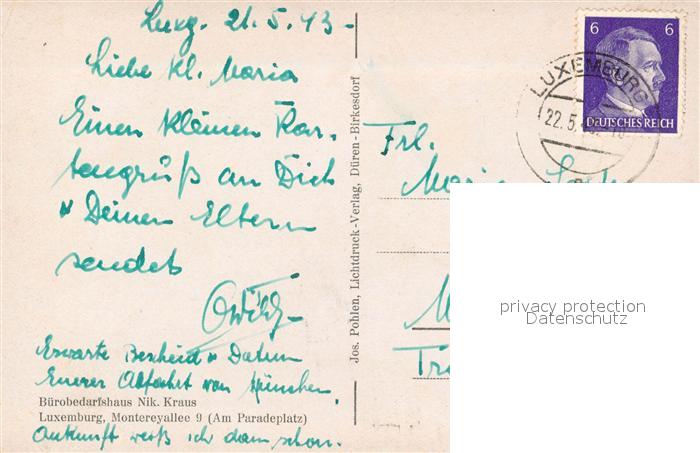 Luxg. 21.5.43-
Liebe kl. Maria
Einen kleinen Kar-
tengruß an Dich
u Deinen Eltern
sendet
Erwarte Bescheid u Datum
Eurer Abfahrt von München,
Bürobedarfshaus Nik. Kraus
Luxemburg, Montereyallee 9 (Am Paradeplatz)
Ankunft weiß ich dann schon.
Jos. Pohlen, Lichtdruck-Verlag, Düren-Birkesdorf
6 6
DEUTSCHES REICH
LUXEMBURG
22.5.
Frl.
Maria
privacy protection
Datenschutz